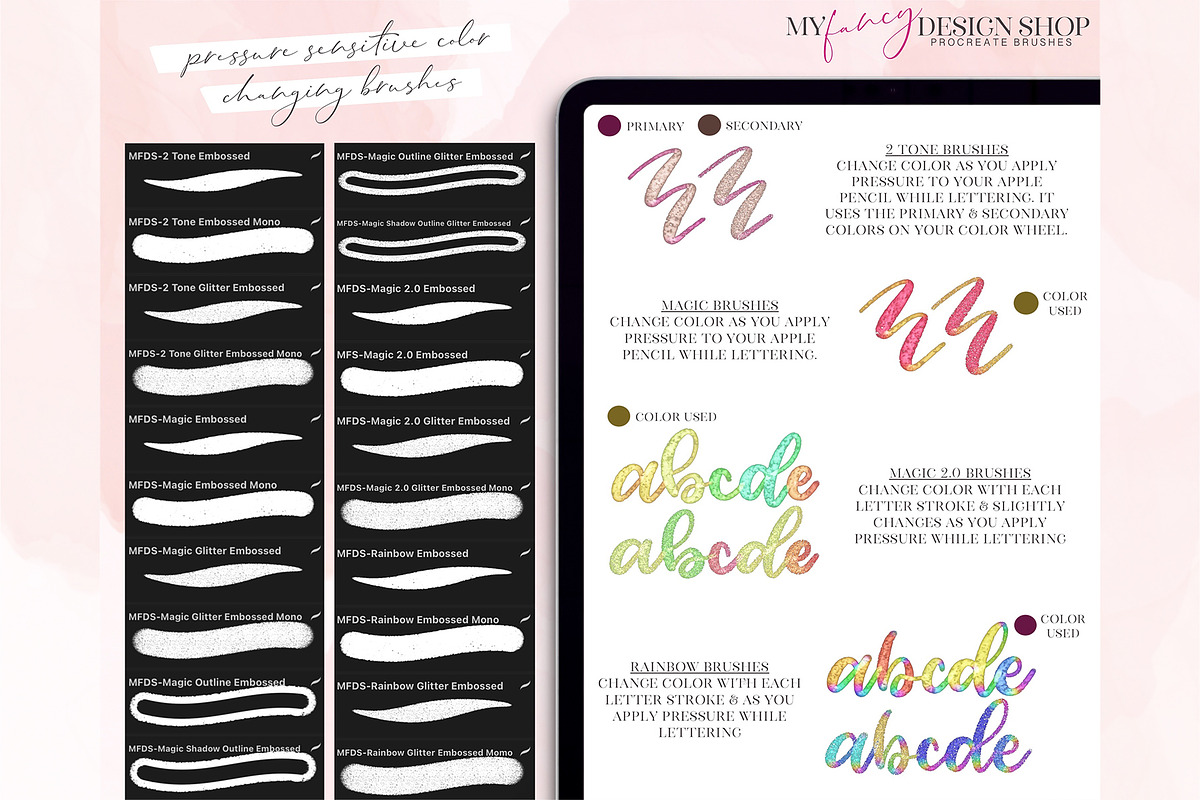 pressure sensitive color
changing brushes
MY fancy DESIGN SHOP
PROCREATE BRUSHES
MFDS-2 Tone Embossed
MFDS-2 Tone Embossed Mono
MFDS-2 Tone Glitter Embossed
MFDS-2 Tone Glitter Embossed Mono
MFDS-Magic Embossed
MFDS-Magic Embossed Mono
MFDS-Magic Glitter Embossed
MFDS-Magic Glitter Embossed Mono
MFDS-Magic Outline Embossed
MFDS-Magic Shadow Outline Embossed
MFDS-Magic Outline Glitter Embossed
MFDS-Magic Shadow Outline Glitter Embossed
MFDS-Magic 2.0 Embossed
MFS-Magic 2.0 Embossed
MFDS-Magic 2.0 Glitter Embossed
MFDS-Magic 2.0 Glitter Embossed Mono
MFDS-Rainbow Embossed
MFDS-Rainbow Embossed Mono
MFDS-Rainbow Glitter Embossed
MFDS-Rainbow Glitter Embossed Momo
PRIMARY SECONDARY
2 TONE BRUSHES
CHANGE COLOR AS YOU APPLY
PRESSURE TO YOUR APPLE
PENCIL WHILE LETTERING. IT
USES THE PRIMARY & SECONDARY
COLORS ON YOUR COLOR WHEEL.
MAGIC BRUSHES
CHANGE COLOR AS YOU APPLY
PRESSURE TO YOUR APPLE
PENCIL WHILE LETTERING.
COLOR
USED
COLOR USED
abcde
abcde
MAGIC 2.0 BRUSHES
CHANGE COLOR WITH EACH
LETTER STROKE & SLIGHTLY
CHANGES AS YOU APPLY
PRESSURE WHILE LETTERING
RAINBOW BRUSHES
CHANGE COLOR WITH EACH
LETTER STROKE & AS YOU
APPLY PRESSURE WHILE
LETTERING
COLOR
USED
abcde
abcde